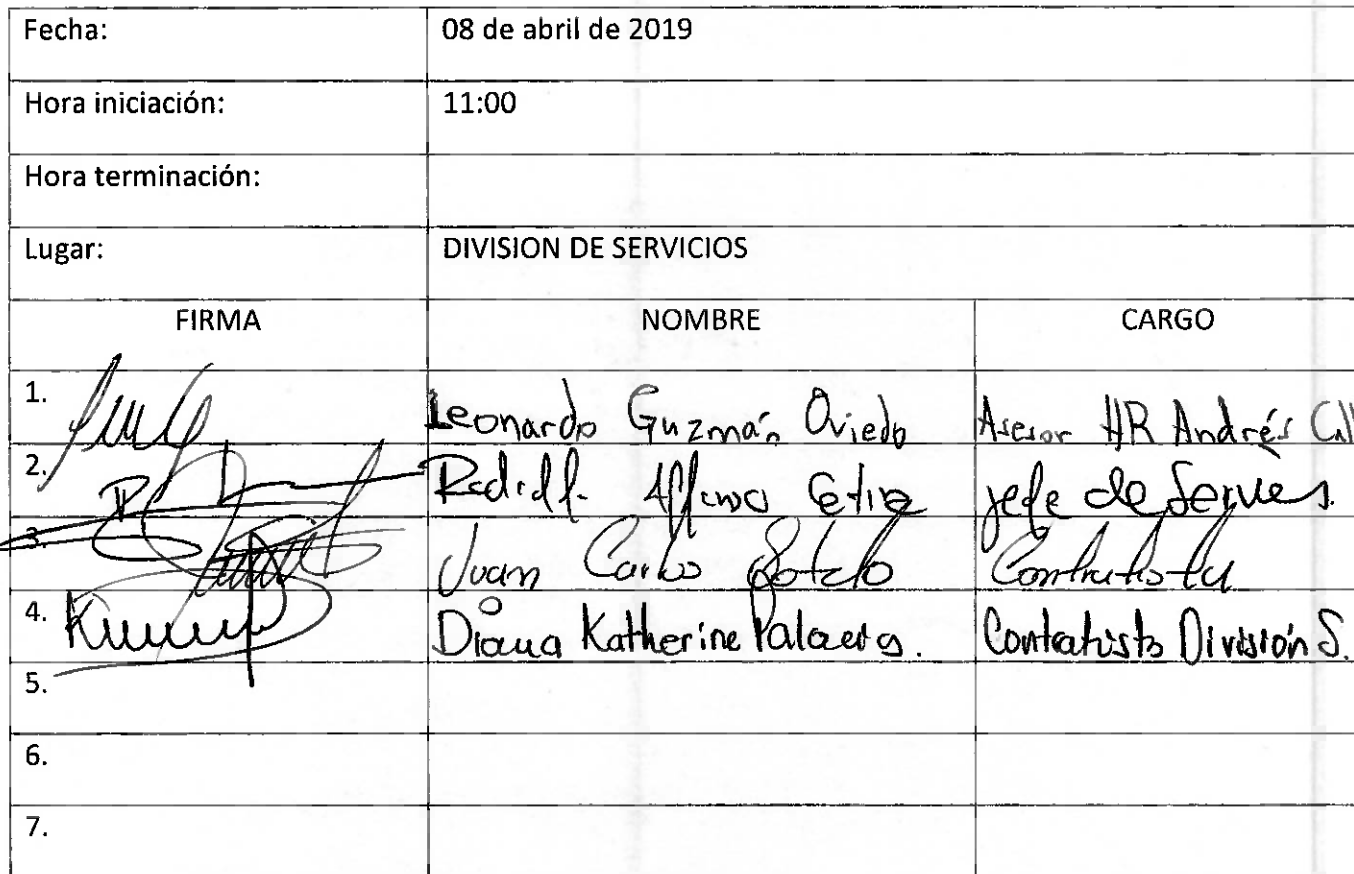 Fecha: 08 de abril de 2019
Hora iniciación: 11:00
Hora terminación:
Lugar: DIVISION DE SERVICIOS
FIRMA NOMBRE CARGO
1. Leonardo Guzmán Oviedo Asesor HR Andrés
2. jefe de
3. Juan Carlos Sotelo Contratista
4. Diana Katherine Contratista División S.
5.
6.
7.